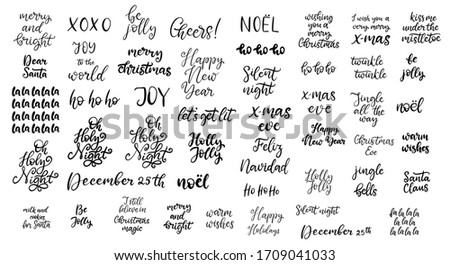 merry
and
bright
XOXO
be
jolly
Cheers!
NOËL
wishing
you a
very
merry
Christmas
I wish you
a very
merry
X-mas
kiss me
under the
mistletoe
Dear
Santa
JOY
to the
world
merry
christmas
Happy
New
Year
ho ho ho
Silent
night
ho ho ho
twinkle
twinkle
be
jolly
lalalala
lalalala
lalalala
lalalala
ho ho ho
JOY
Let's get lit
X-mas
eve
X-mas
eve
Jingle
all the
way
noël
Oh
Holy
Night
Oh
Holy
Night
Oh
Holy
Night
Holly
Jolly
Feliz
Navidad
Happy
New Year
Christmas
Eve
warm
wishes
December 25th
noël
Ho Ho Ho
Holly
Jolly
jingle
bells
Santa
Claus
milk and
cookies
for Santa
Be
Jolly
I still
believe in
Christmas
magic
merry
and
bright
warm
wishes
Happy
Holidays
Silent night
December 25th
fa la la
la la
la la
la la
www.shutterstock.com · 1709041033